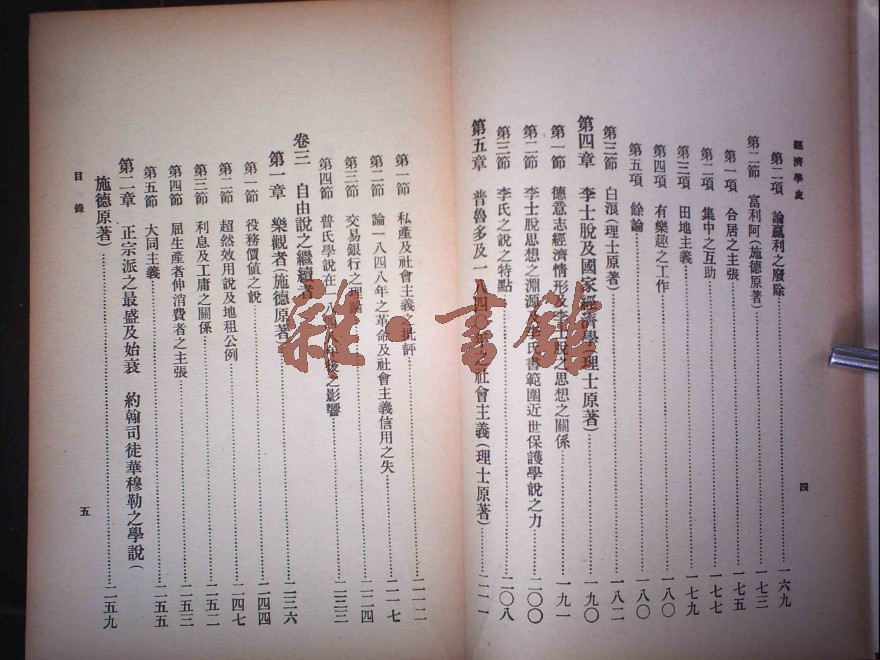 經濟學史
第二項 論贏利之廢除 一六九
第二節 富利阿(施德原著) 一七三
第一項 合居之主張 一七五
第二項 集中之互助 一七七
第三項 田地主義 一七九
第四項 有樂趣之工作 一八〇
第五項 餘論 一八〇
第三節 白浪(理士原著) 一八二
第四章 李士脫及國家經濟學(理士原著) 一九〇
第一節 德意志經濟情形及李士脫之思想之關係 一九一
第二節 李士脫思想之淵源及李氏書範圍近世保護學說之力 二〇〇
第三節 李氏之說之特點 二〇八
第五章 普魯多及一八四〇年之社會主義(理士原著) 二一一
四
第一節 私產及社會主義之批評 二一二
第二節 論一八四八年之革命及社會主義信用之失 二一七
第三節 交易銀行之理論 二二四
第四節 普氏學說在一八四八年後之影響 二三三
卷三 自由說之繼續者
第一章 樂觀者(施德原著) 二三六
第一節 役務價值之說 二四四
第二節 超然效用說及地租公例 二四七
第三節 利息及工庸之關係 二五二
第四節 屈生產者伸消費者之主張 二五三
第五節 大同主義 二五五
第二章 正宗派之最盛及始衰 約翰司徒華穆勒之學說(
施德原著) 二五九
目錄
五
雜·書館